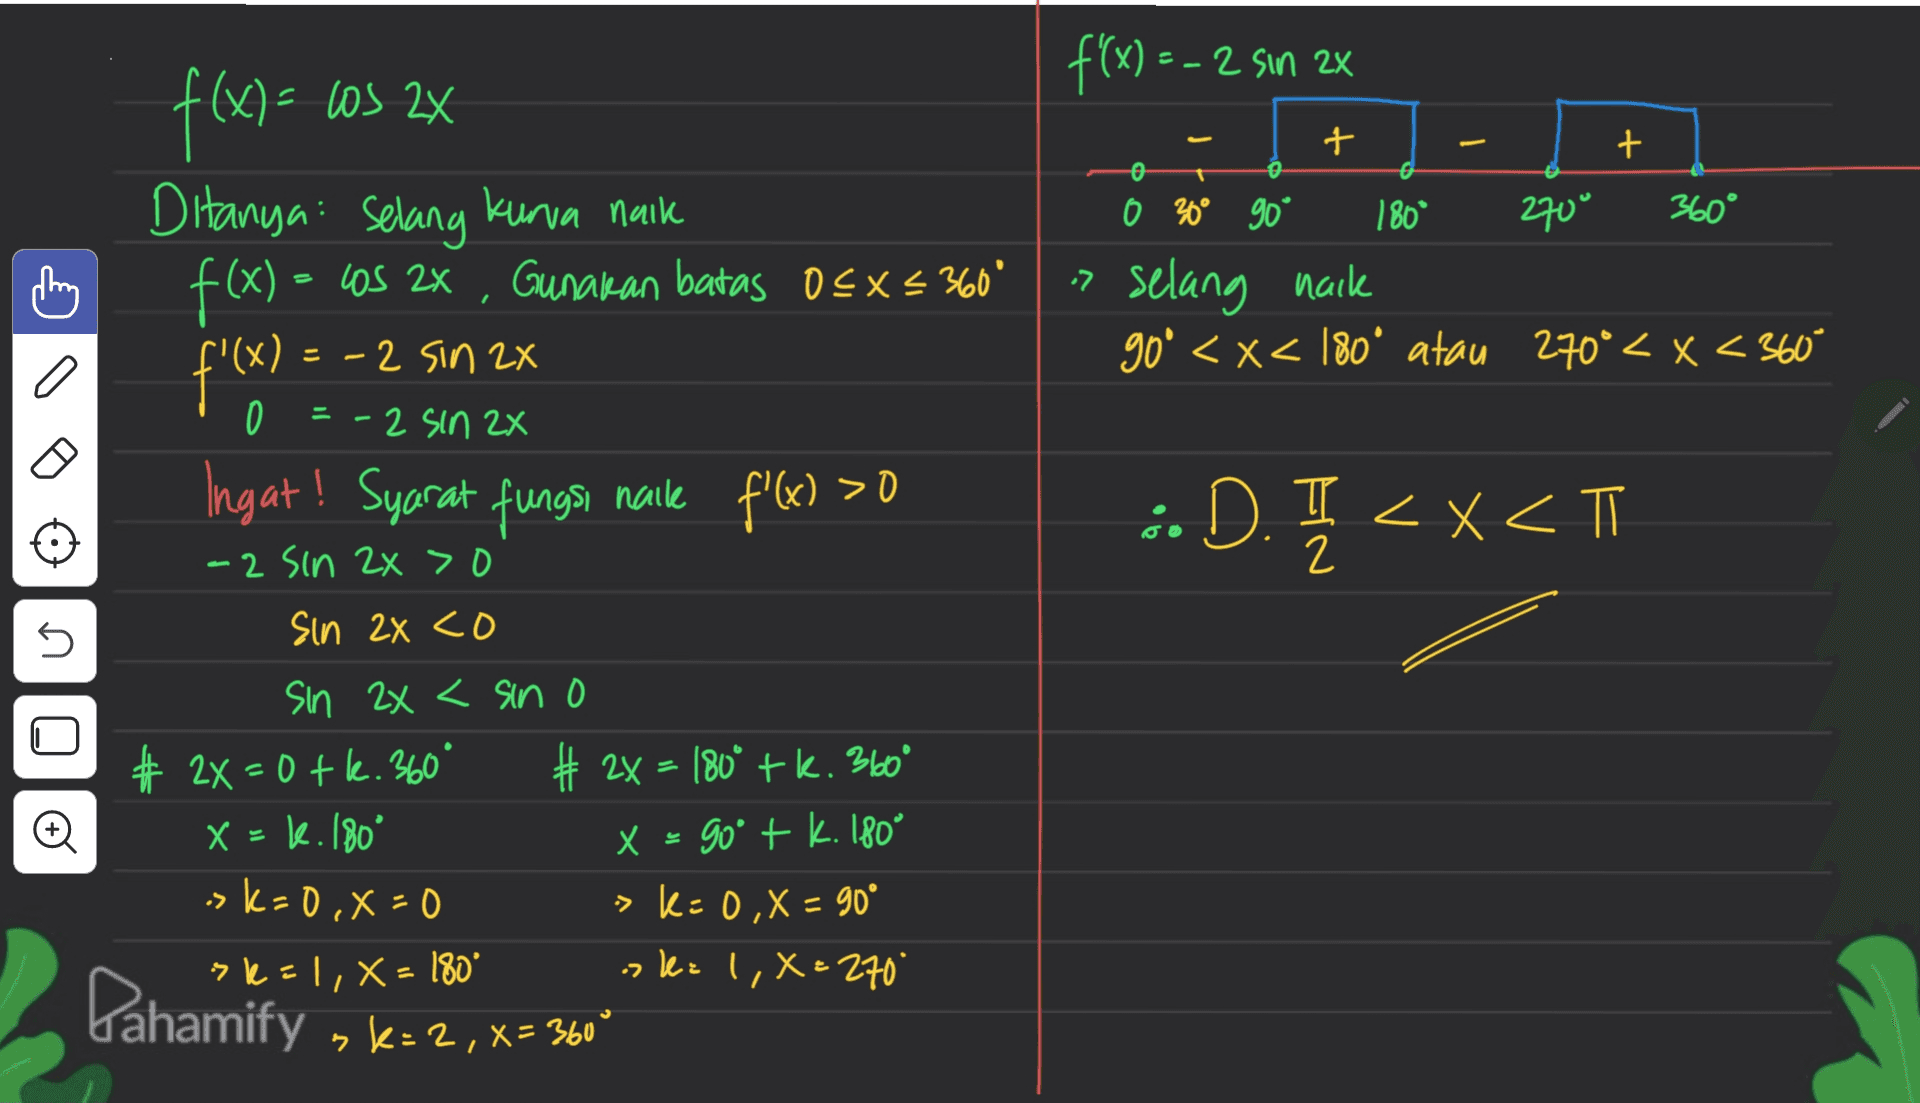 f(x) = cos 2x
Ditanya: Selang kurva naik
f(x) = cos 2x , Gunakan batas 0 ≤ x ≤ 360°
f'(x) = -2 sin 2x
0 = -2 sin 2x
Ingat! Syarat fungsi naik f'(x) > 0
-2 sin 2x > 0
sin 2x < 0
sin 2x < sin 0
# 2x = 0 + k. 360°
x = k. 180°
-> k = 0, x = 0
-> k = 1, x = 180°
-> k = 2, x = 360°
# 2x = 180° + k. 360°
x = 90° + k. 180°
-> k = 0, x = 90°
-> k = 1, x = 270°
Pahamify
f'(x) = -2 sin 2x
- + - +
0 30° 90° 180° 270° 360°
-> selang naik
90° < x < 180° atau 270° < x < 360°
∴ D. π/2 < x < π